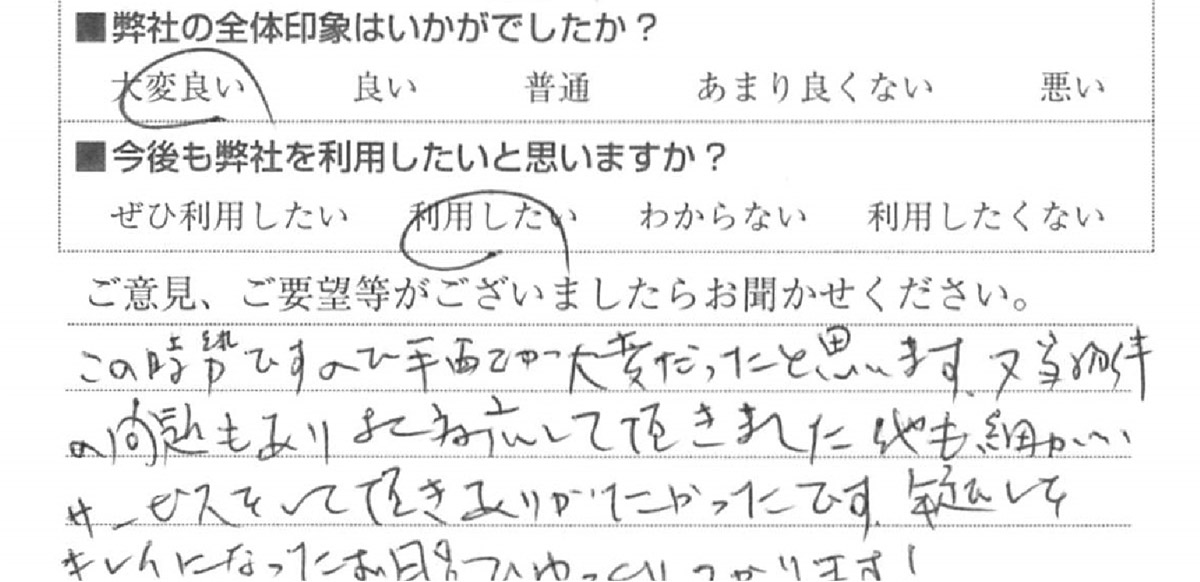 ■弊社の全体印象はいかがでしたか？
大変良い 良い 普通 あまり良くない 悪い
■今後も弊社を利用したいと思いますか？
ぜひ利用したい 利用したい わからない 利用したくない
ご意見、ご要望等がございましたらお聞かせください。
この時勢ですので手配とか大変だったと思います。又当物件
の問題もあり 対応して頂きました 他も細かい
サービスをして頂きありがたかったです。
キレイになったお風呂でゆっくりつかります！